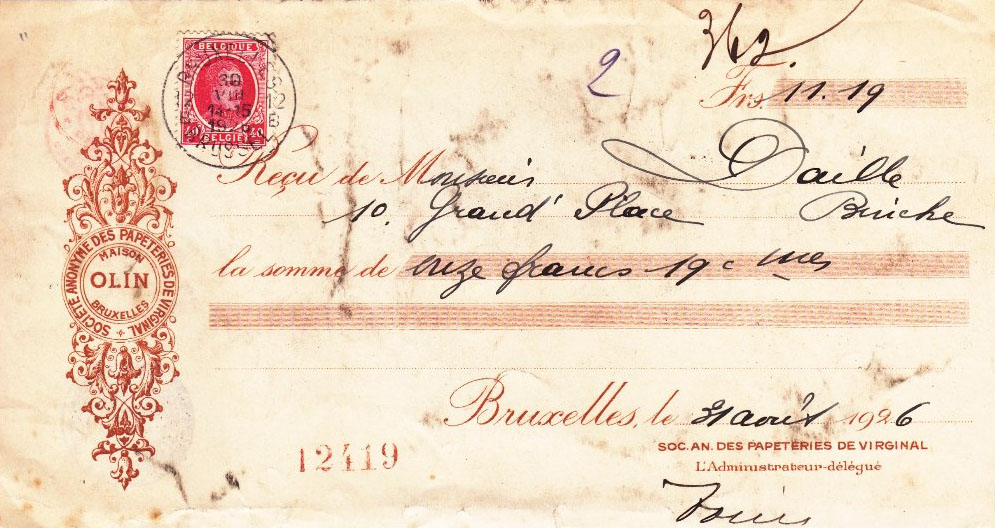 362.
2
Frs 11.19
BELGIQUE
30
VIII
12
B
40 40
BELGIË
Reçu de Monsieur Daille
10, Grand' Place Binche
la somme de onze francs 19 cmes
SOCIÉTÉ ANONYME DES PAPETERIES DE VIRGINAL
MAISON
OLIN
BRUXELLES
Bruxelles, le 31 août 1926
SOC. AN. DES PAPETERIES DE VIRGINAL
L'Administrateur-délégué
12419